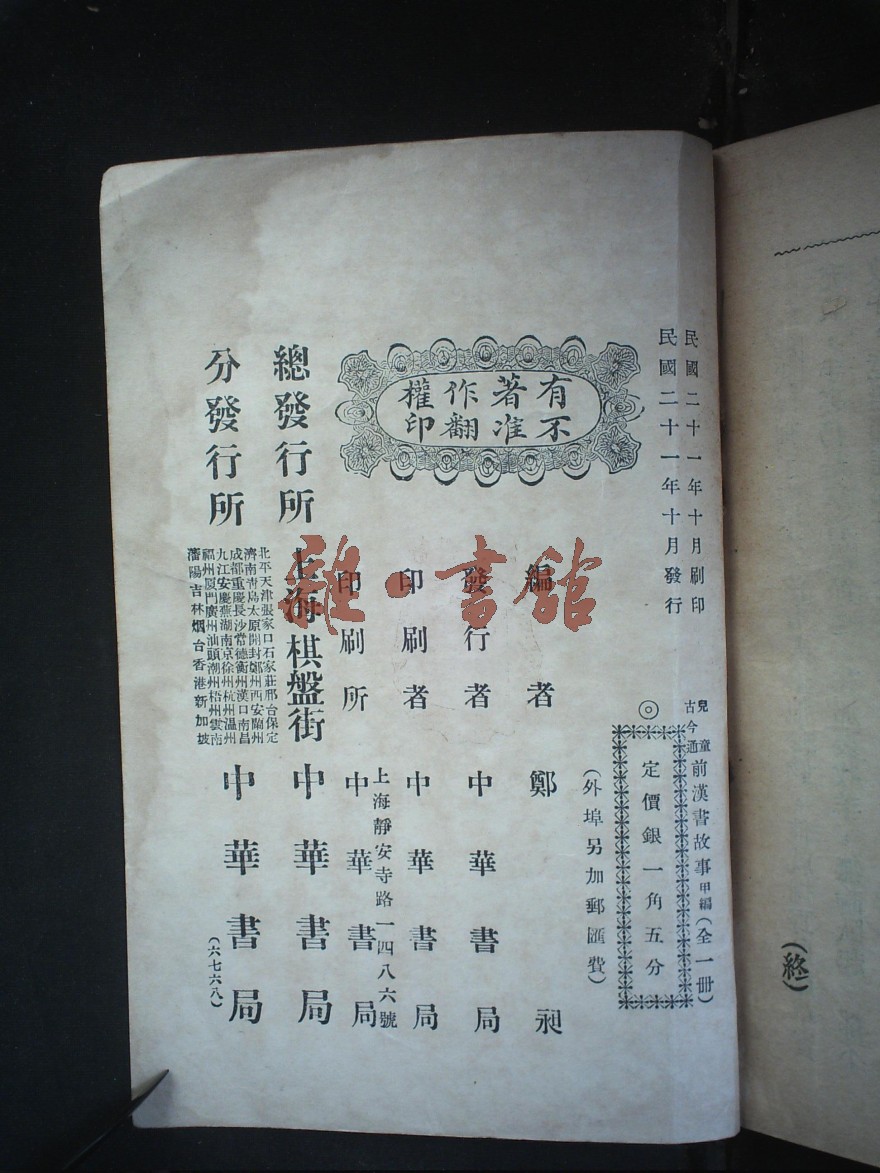 民國二十一年十月刷印
民國二十一年十月發行
兒童古今通
前漢書故事甲編(全一冊)
◎定價銀一角五分
(外埠另加郵匯費)
有著作權
不准翻印
編者 鄭昶
發行者 中華書局
印刷者 中華書局
上海靜安寺路一四八六號
印刷所 中華書局
總發行所 上海棋盤街 中華書局
分發行所 中華書局
北平天津張家口石家莊邢台保定
濟南青島太原開封鄭州西安蘭州
成都重慶長沙常德衡州漢口南昌
九江安慶蕪湖南京徐州杭州溫州
福州廈門廣州汕頭潮州梧州雲南
瀋陽吉林烟台香港新加坡
(六七六八)
(終)
雜·書館